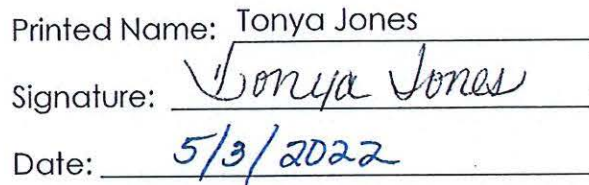 Printed Name: Tonya Jones
Signature: Tonya Jones
Date: 5/3/2022